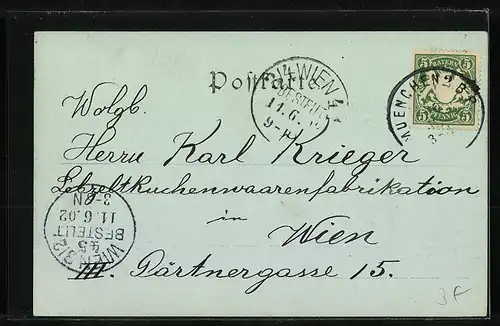 Postkarte
14 WIEN 4
BESTELLT
11.6.
9-
5 BAYERN 5
5 PFENNIG 5
MUENCHEN 2 B.P.
Wolgb.
Herrn Karl Krieger
Lebzeltkuchenwaarenfabrikation
in
Wien
III. Gärtnergasse 15.
WIEN 3/2
45
BESTELLT
11.6.02
3-
N
3F